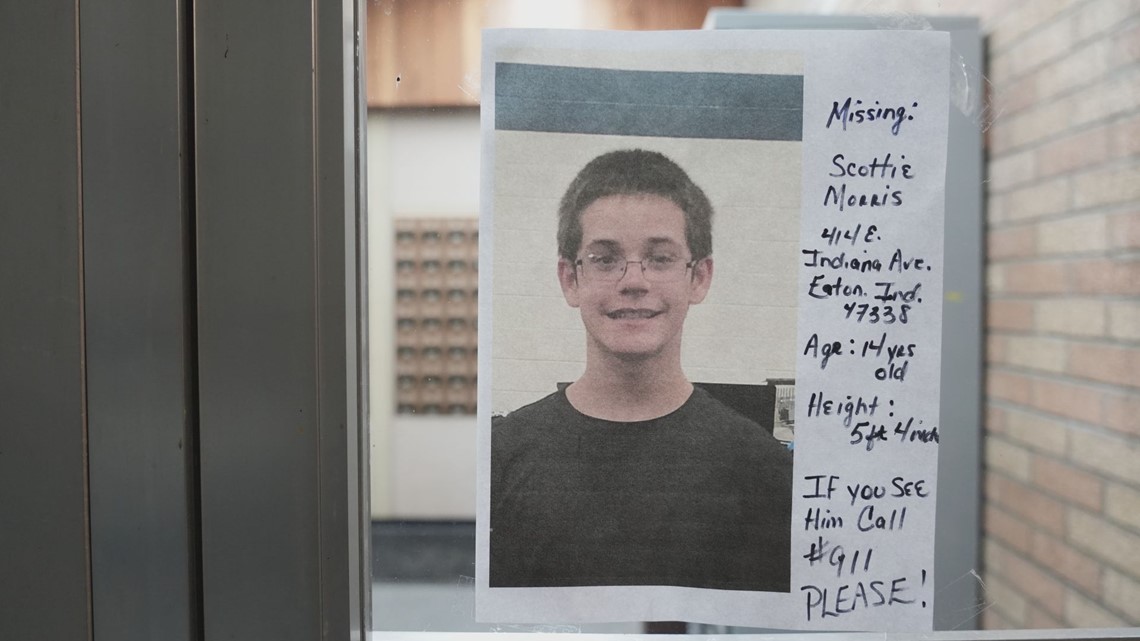 Missing:
Scottie
Morris
414 E.
Indiana Ave.
Eaton. Ind.
47338
Age: 14 yrs
old
Height:
5ft 4 inch
If you see
Him Call
#911
PLEASE!